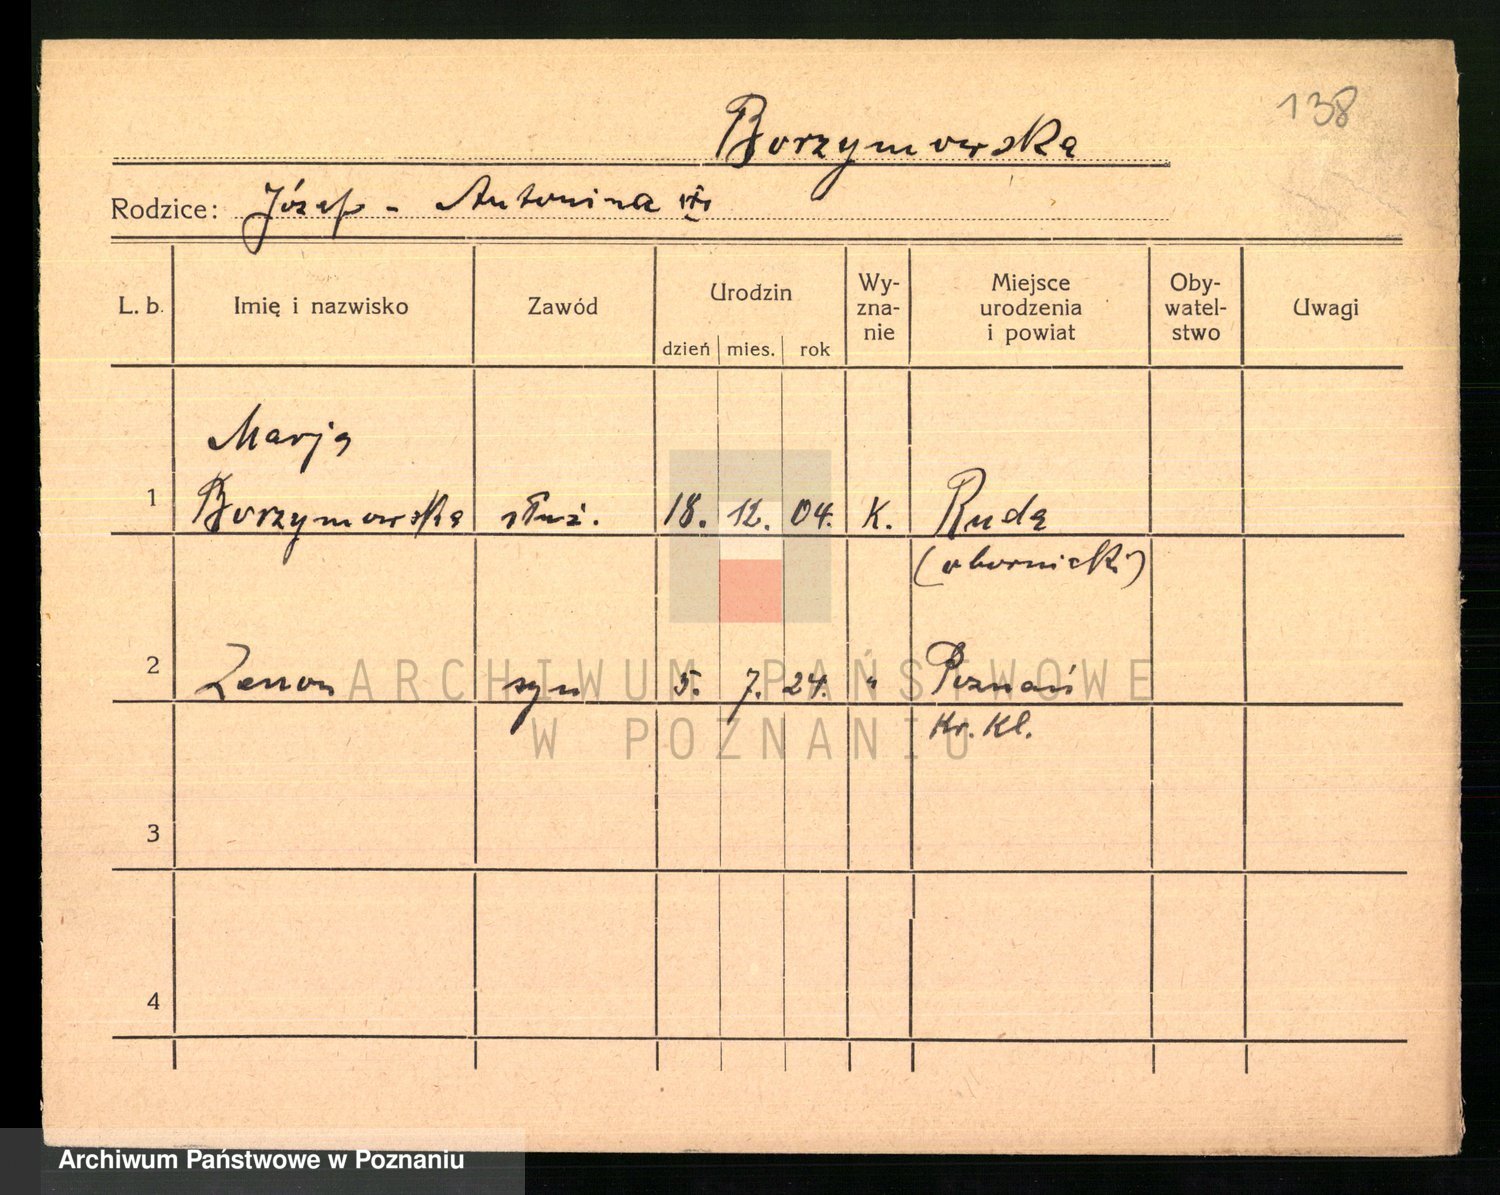 138
Borzymowska
Rodzice: Józef - Antonina
L. b. Imię i nazwisko Zawód Urodzin dzień mies. rok Wy-zna-nie Miejsce urodzenia i powiat Oby-watel-stwo Uwagi
Marja
1 Borzymowska służ. 18. 12. 04. K. Ruda
(obornicki)
2 Zenon syn 5. 7. 24. " Poznań
Kr. Kl.
3
4
ARCHIWUM PAŃSTWOWE
W POZNANIU
Archiwum Państwowe w Poznaniu